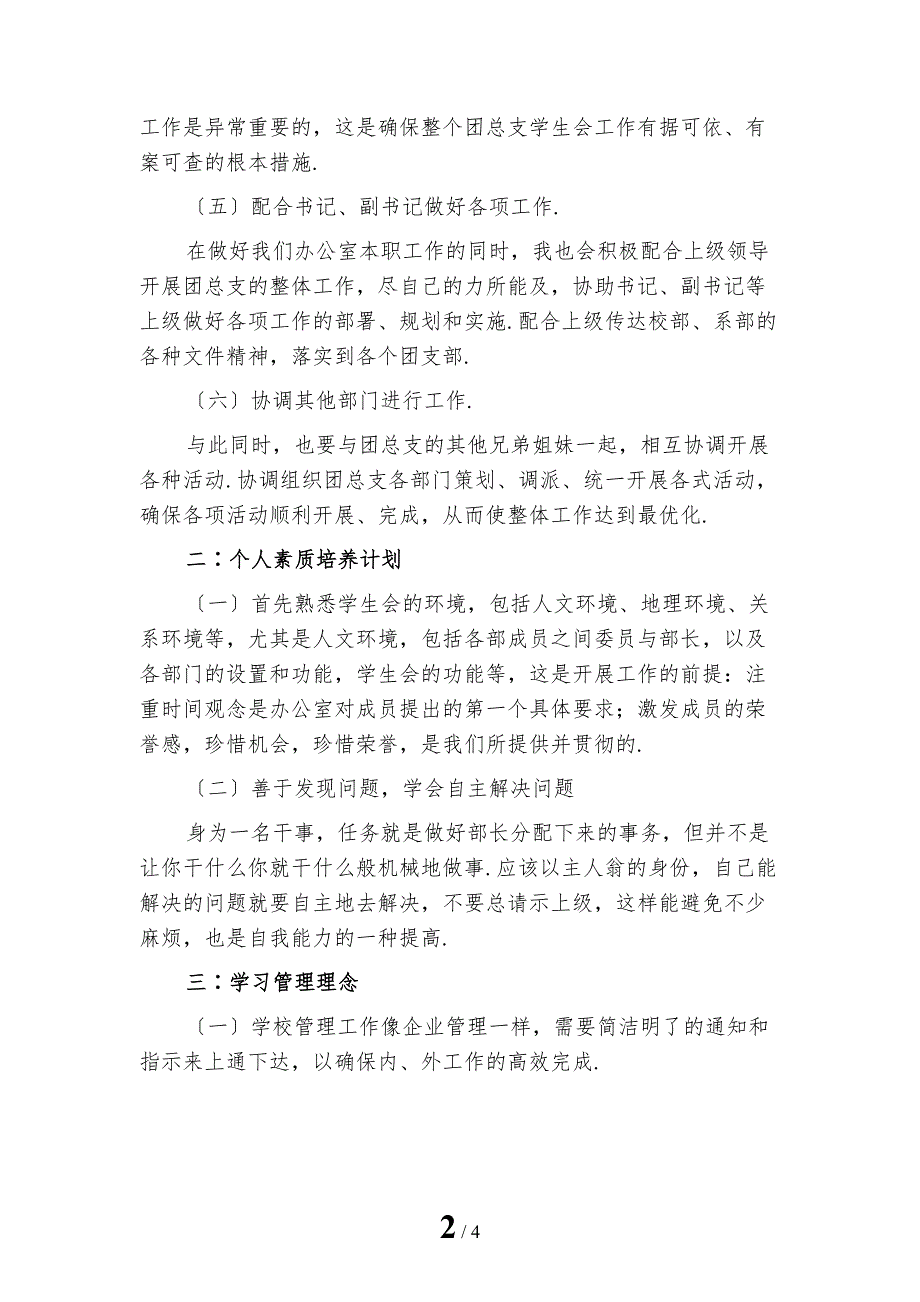 工作是异常重要的，这是确保整个团总支学生会工作有据可依、有
案可查的根本措施.
〔五〕配合书记、副书记做好各项工作.
在做好我们办公室本职工作的同时，我也会积极配合上级领导
开展团总支的整体工作，尽自己的力所能及，协助书记、副书记等
上级做好各项工作的部署、规划和实施.配合上级传达校部、系部的
各种文件精神，落实到各个团支部.
〔六〕协调其他部门进行工作.
与此同时，也要与团总支的其他兄弟姐妹一起，相互协调开展
各种活动.协调组织团总支各部门策划、调派、统一开展各式活动，
确保各项活动顺利开展、完成，从而使整体工作达到最优化.
二：个人素质培养计划
〔一〕首先熟悉学生会的环境，包括人文环境、地理环境、关
系环境等，尤其是人文环境，包括各部成员之间委员与部长，以及
各部门的设置和功能，学生会的功能等，这是开展工作的前提：注
重时间观念是办公室对成员提出的第一个具体要求；激发成员的荣
誉感，珍惜机会，珍惜荣誉，是我们所提供并贯彻的.
〔二〕善于发现问题，学会自主解决问题
身为一名干事，任务就是做好部长分配下来的事务，但并不是
让你干什么你就干什么般机械地做事.应该以主人翁的身份，自己能
解决的问题就要自主地去解决，不要总请示上级，这样能避免不少
麻烦，也是自我能力的一种提高.
三：学习管理理念
〔一〕学校管理工作像企业管理一样，需要简洁明了的通知和
指示来上通下达，以确保内、外工作的高效完成.
2 / 4